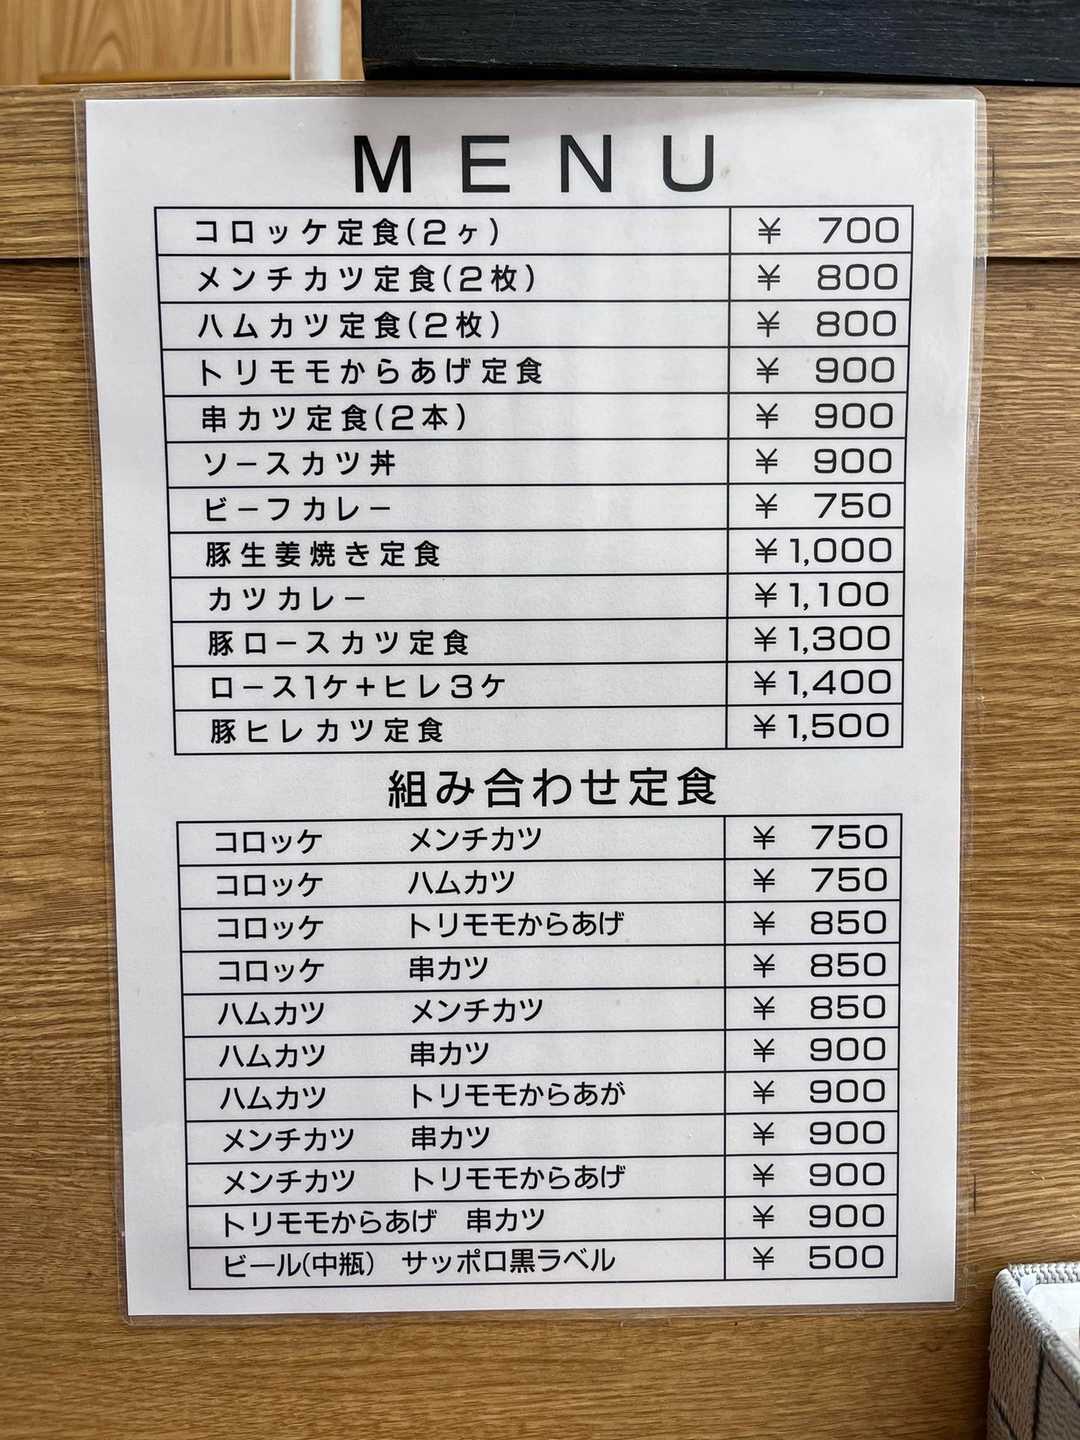 MENU
コロッケ定食(2ヶ) ¥ 700
メンチカツ定食(2枚) ¥ 800
ハムカツ定食(2枚) ¥ 800
トリモモからあげ定食 ¥ 900
串カツ定食(2本) ¥ 900
ソースカツ丼 ¥ 900
ビーフカレー ¥ 750
豚生姜焼き定食 ¥1,000
カツカレー ¥1,100
豚ロースカツ定食 ¥1,300
ロース1ケ+ヒレ3ケ ¥1,400
豚ヒレカツ定食 ¥1,500
組み合わせ定食
コロッケ メンチカツ ¥ 750
コロッケ ハムカツ ¥ 750
コロッケ トリモモからあげ ¥ 850
コロッケ 串カツ ¥ 850
ハムカツ メンチカツ ¥ 850
ハムカツ 串カツ ¥ 900
ハムカツ トリモモからあが ¥ 900
メンチカツ 串カツ ¥ 900
メンチカツ トリモモからあげ ¥ 900
トリモモからあげ 串カツ ¥ 900
ビール(中瓶) サッポロ黒ラベル ¥ 500